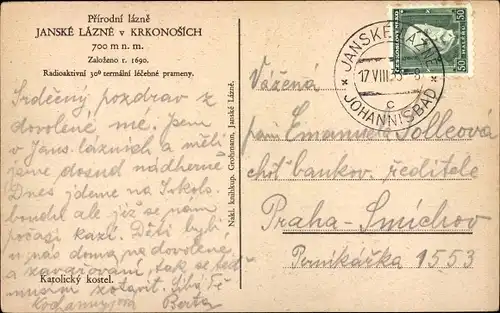 Přírodní lázně
JANSKÉ LÁZNĚ v KRKONOŠÍCH
700 m n. m.
Založeno r. 1690.
Radioaktivní 30º termální léčebné prameny.
Srdečný pozdrav z
dovolené, mé. Jsem
v Jans. lázních a měli
jsme dosud nádherně.
Dnes jdeme na Sokol.
boudu ale již se nám
počasí kazí. Děti byli
u nás doma na dovolené
a zavařování, tak se teď
musím zotavit. Líbá Tě
Berta
Katolický kostel.
Nakl. knihkup. Grohmann, Janské Lázně.
JANSKÉ LÁZNĚ
17 VIII
C
JOHANNISBAD
50 50
Vážená
paní Emanuela Polleová
choť bankov. ředitele
Praha-Smíchov
Perníkářka 1553